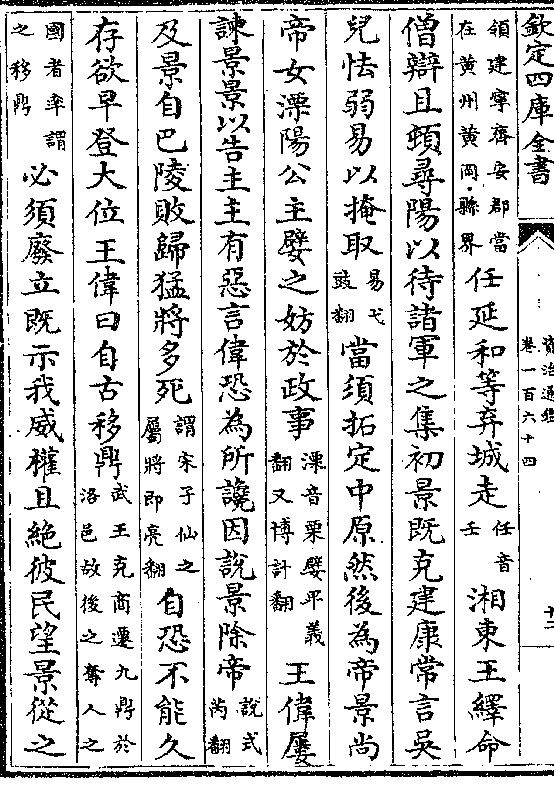 欽定四庫全書
資治通鑑
卷一百六十四
十二
領建寧齊安郡當
在黄州黄岡縣界
任延和等弃城走
任音
壬
湘東王繹命
僧辯且頓尋陽以待諸軍之集初景既克建康常言吳
兒怯弱易以掩取
易弋
豉翻
當須拓定中原然後為帝景尚
帝女溧陽公主嬖之妨於政事
溧音栗嬖平義
翻又博計翻
王偉屢
諫景景以告主主有惡言偉恐為所讒因說景除帝
說式
芮翻
及景自巴陵敗歸猛將多死
謂宋子仙之
屬將即亮翻
自恐不能久
存欲早登大位王偉曰自古移鼎
武王克商遷九鼎於
洛邑故後之奪人之
國者率謂
之移鼎
必須廢立既示我威權且絶彼民望景從之